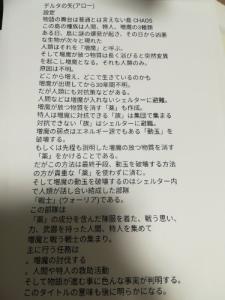 デルタの矢(アロー)
設定
物語の舞台は普通とは言えない島 CHAOS
この島の種族は人間、特人、増魔の3種類
ある日、島に謎の爆発が起き、その日から凶悪
な生物が次々と現れた
人類はそれを「増魔」と呼ぶ。
そして増魔が放つ物質は長く浴びると突然変異
を起こし増魔となる。それも人類のみ。
原因は不明。
どこから増え、どこで生きているのかも
増魔が出現してから30年間不明。
だが人類にも対抗策などがある。
人間などは増魔が入れないシェルターに避難。
増魔が放つ物質を消す「薬」も作成。
特人は増魔に対抗できる「族」は集団で集まる
対抗できない「族」はシェルターに避難。
増魔の弱点はエネルギー源でもある「動玉」を
破壊する。
もしくは先程も説明した増魔の放つ物質を消す
「薬」をかけることである。
だがこの方法は最終手段、動玉を破壊する方法
の方が貴重な「薬」を使わずに済む。
そして増魔の動玉を破壊するのはシェルター内
で人類が話し合い結成した部隊
「戦士」(ウォーリア)である。
この部隊は
「薬」の成分を含んだ陣服を着た、戦う思い、
力、武器を持った人間、特人を集めて
増魔と戦う戦士の集まり。
主に行う任務は
、増魔の討伐する
、人間や特人の救助活動
そして物語が進む事に色んな事実が判明する。
このタイトルの意味も後に明らかになる。